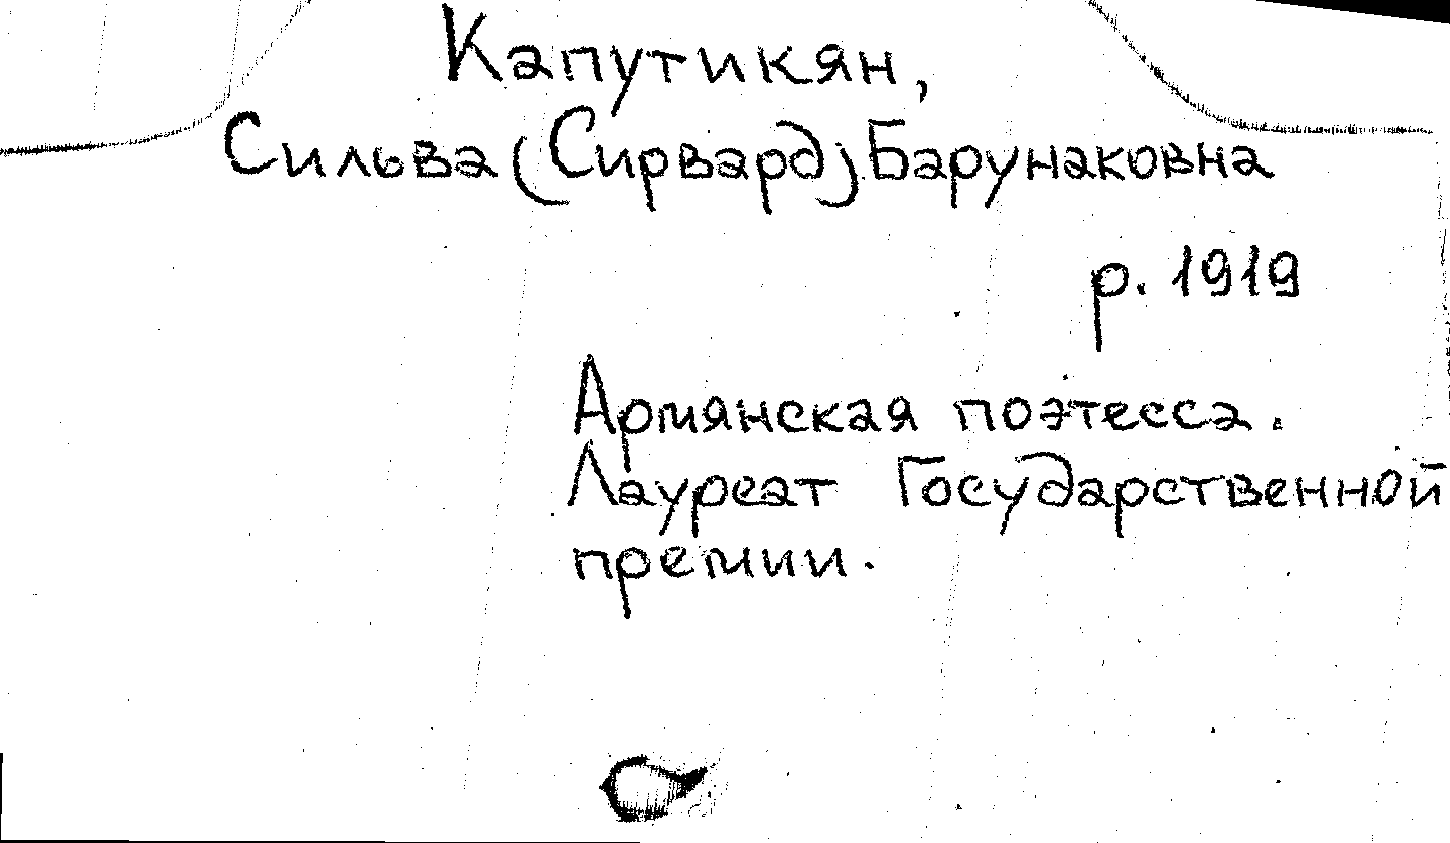 Капутикян,
Сильва (Сирвард) Барунаковна
р. 1919
Армянская поэтесса.
Лауреат Государственной
премии.